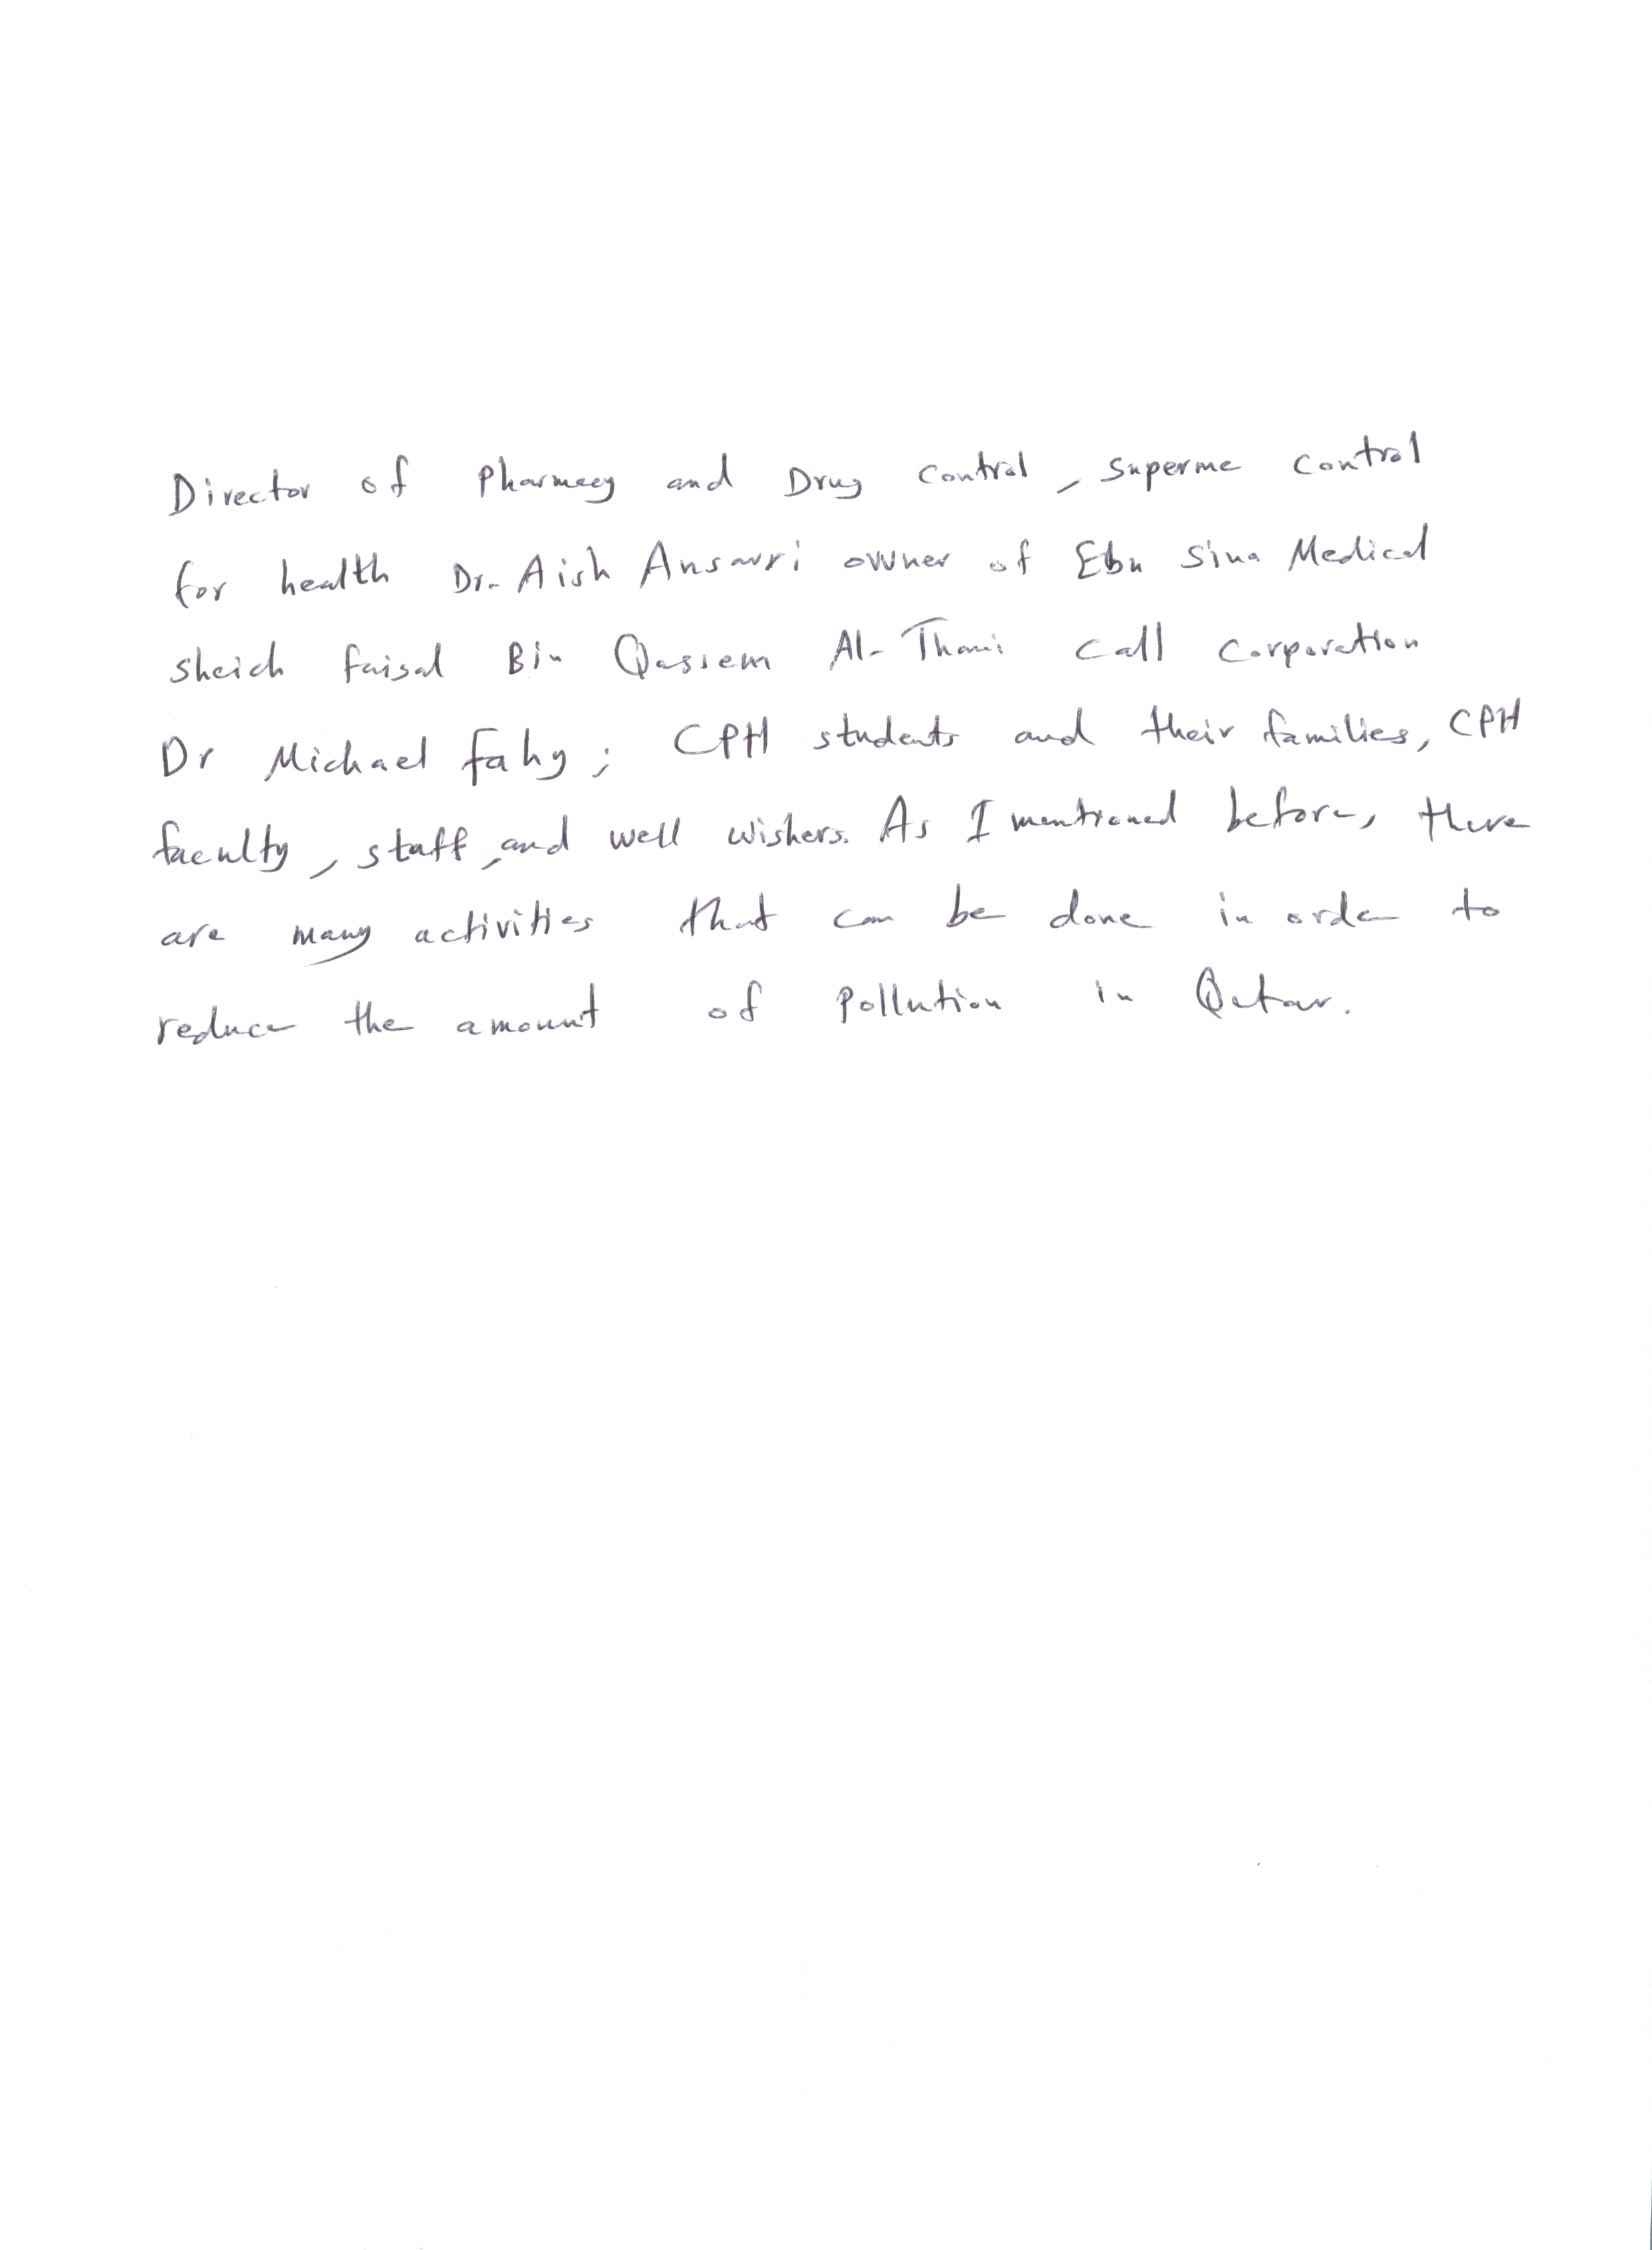 Director of Pharmacy and Drug Control, Superme Control
for health Dr. Aish Ansarri owner of Ebn Sina Medical
sheich faisal Bin Qassem Al-Thani Call Corporation
Dr Michael Fahy; CPH students and their families, CPH
faculty, staff, and well wishers. As I mentioned before, there
are many activities that can be done in order to
reduce the amount of pollution in Qatar.